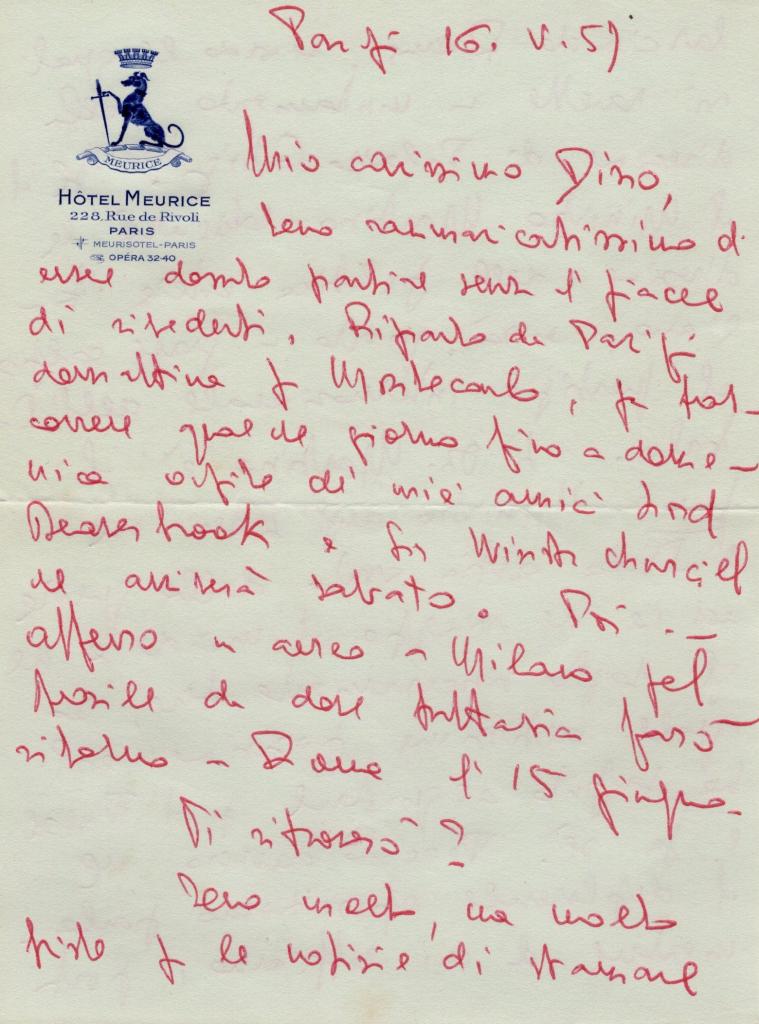 Parigi 16. V. 57
MEURICE
HÔTEL MEURICE
228, Rue de Rivoli
PARIS
MEURISOTEL-PARIS
OPÉRA 32-40
Mio carissimo Dino,
sono rammaricatissimo di
essere dovuto partire senza il piacere
di rivederti. Riparto da Parigi
domattina p Montecarlo, p tras-
correre qualche giorno fino a dome-
nica ospite di miei amici Lord
Beaverbrook e Sir Winston Churciel
che arriverà sabato. Poi
in aereo a Milano
da dove tuttavia farò
ritorno a Roma il 15 giugno.
Ti ritroverò?
Sono molto, ma molto
triste p le notizie di stamane